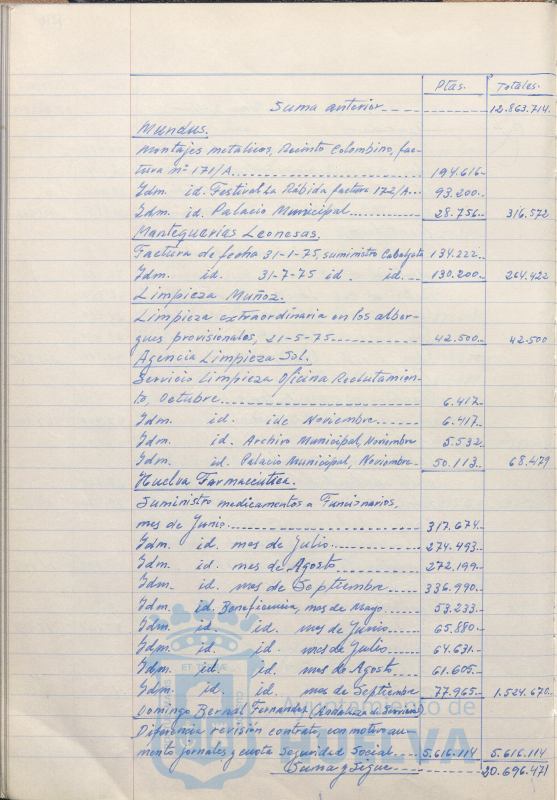 Ptas. Totales.
Suma anterior 12.863.714.
Mundus.
Montajes metalicos, Recinto Colombino, fac-
tura nº 171/A 194.616-
Idm. id. Festival La Rábida factura 172/A 93.200-
Idm. id. Palacio Municipal 28.756- 316.572
Mantequerias Leonesas.
Factura de fecha 31-1-75, suministro Cabalgata 134.222-
Idm. id. 31-7-75 id. id. 130.200- 264.422
Limpieza Muñoz.
Limpieza extraordinaria en los alber-
gues provisionales, 21-5-75 42.500- 42.500
Agencia Limpieza Sol.
Servicio Limpieza Oficina Reclutamien-
to, Octubre 6.417-
Idm. id. id. Noviembre 6.417-
Idm. id. Archivo Municipal, Noviembre 5.532
Idm. id. Palacio Municipal, Noviembre 50.113- 68.479
Huelva Farmaceutica.
Suministro medicamentos a Funcionarios,
mes de Junio 317.674-
Idm. id. mes de Julio 274.493-
Idm. id. mes de Agosto 272.199-
Idm. id. mes de Septiembre 336.990-
Idm. id. Beneficencia, mes de Mayo 53.233-
Idm. id. id. mes de Junio 65.880-
Idm. id. id. mes de Julio 64.631-
Idm. id. id. mes de Agosto 61.605-
Idm. id. id. mes de Septiembre 77.965- 1.524.670-
Domingo Bernal Fernandez
Diferencia revisión contrato, con motivo au-
mento jornales y cuota Seguridad Social 5.616.114 5.616.114
Suma y Sigue 20.696.471
Ayuntamiento de
HUELVA